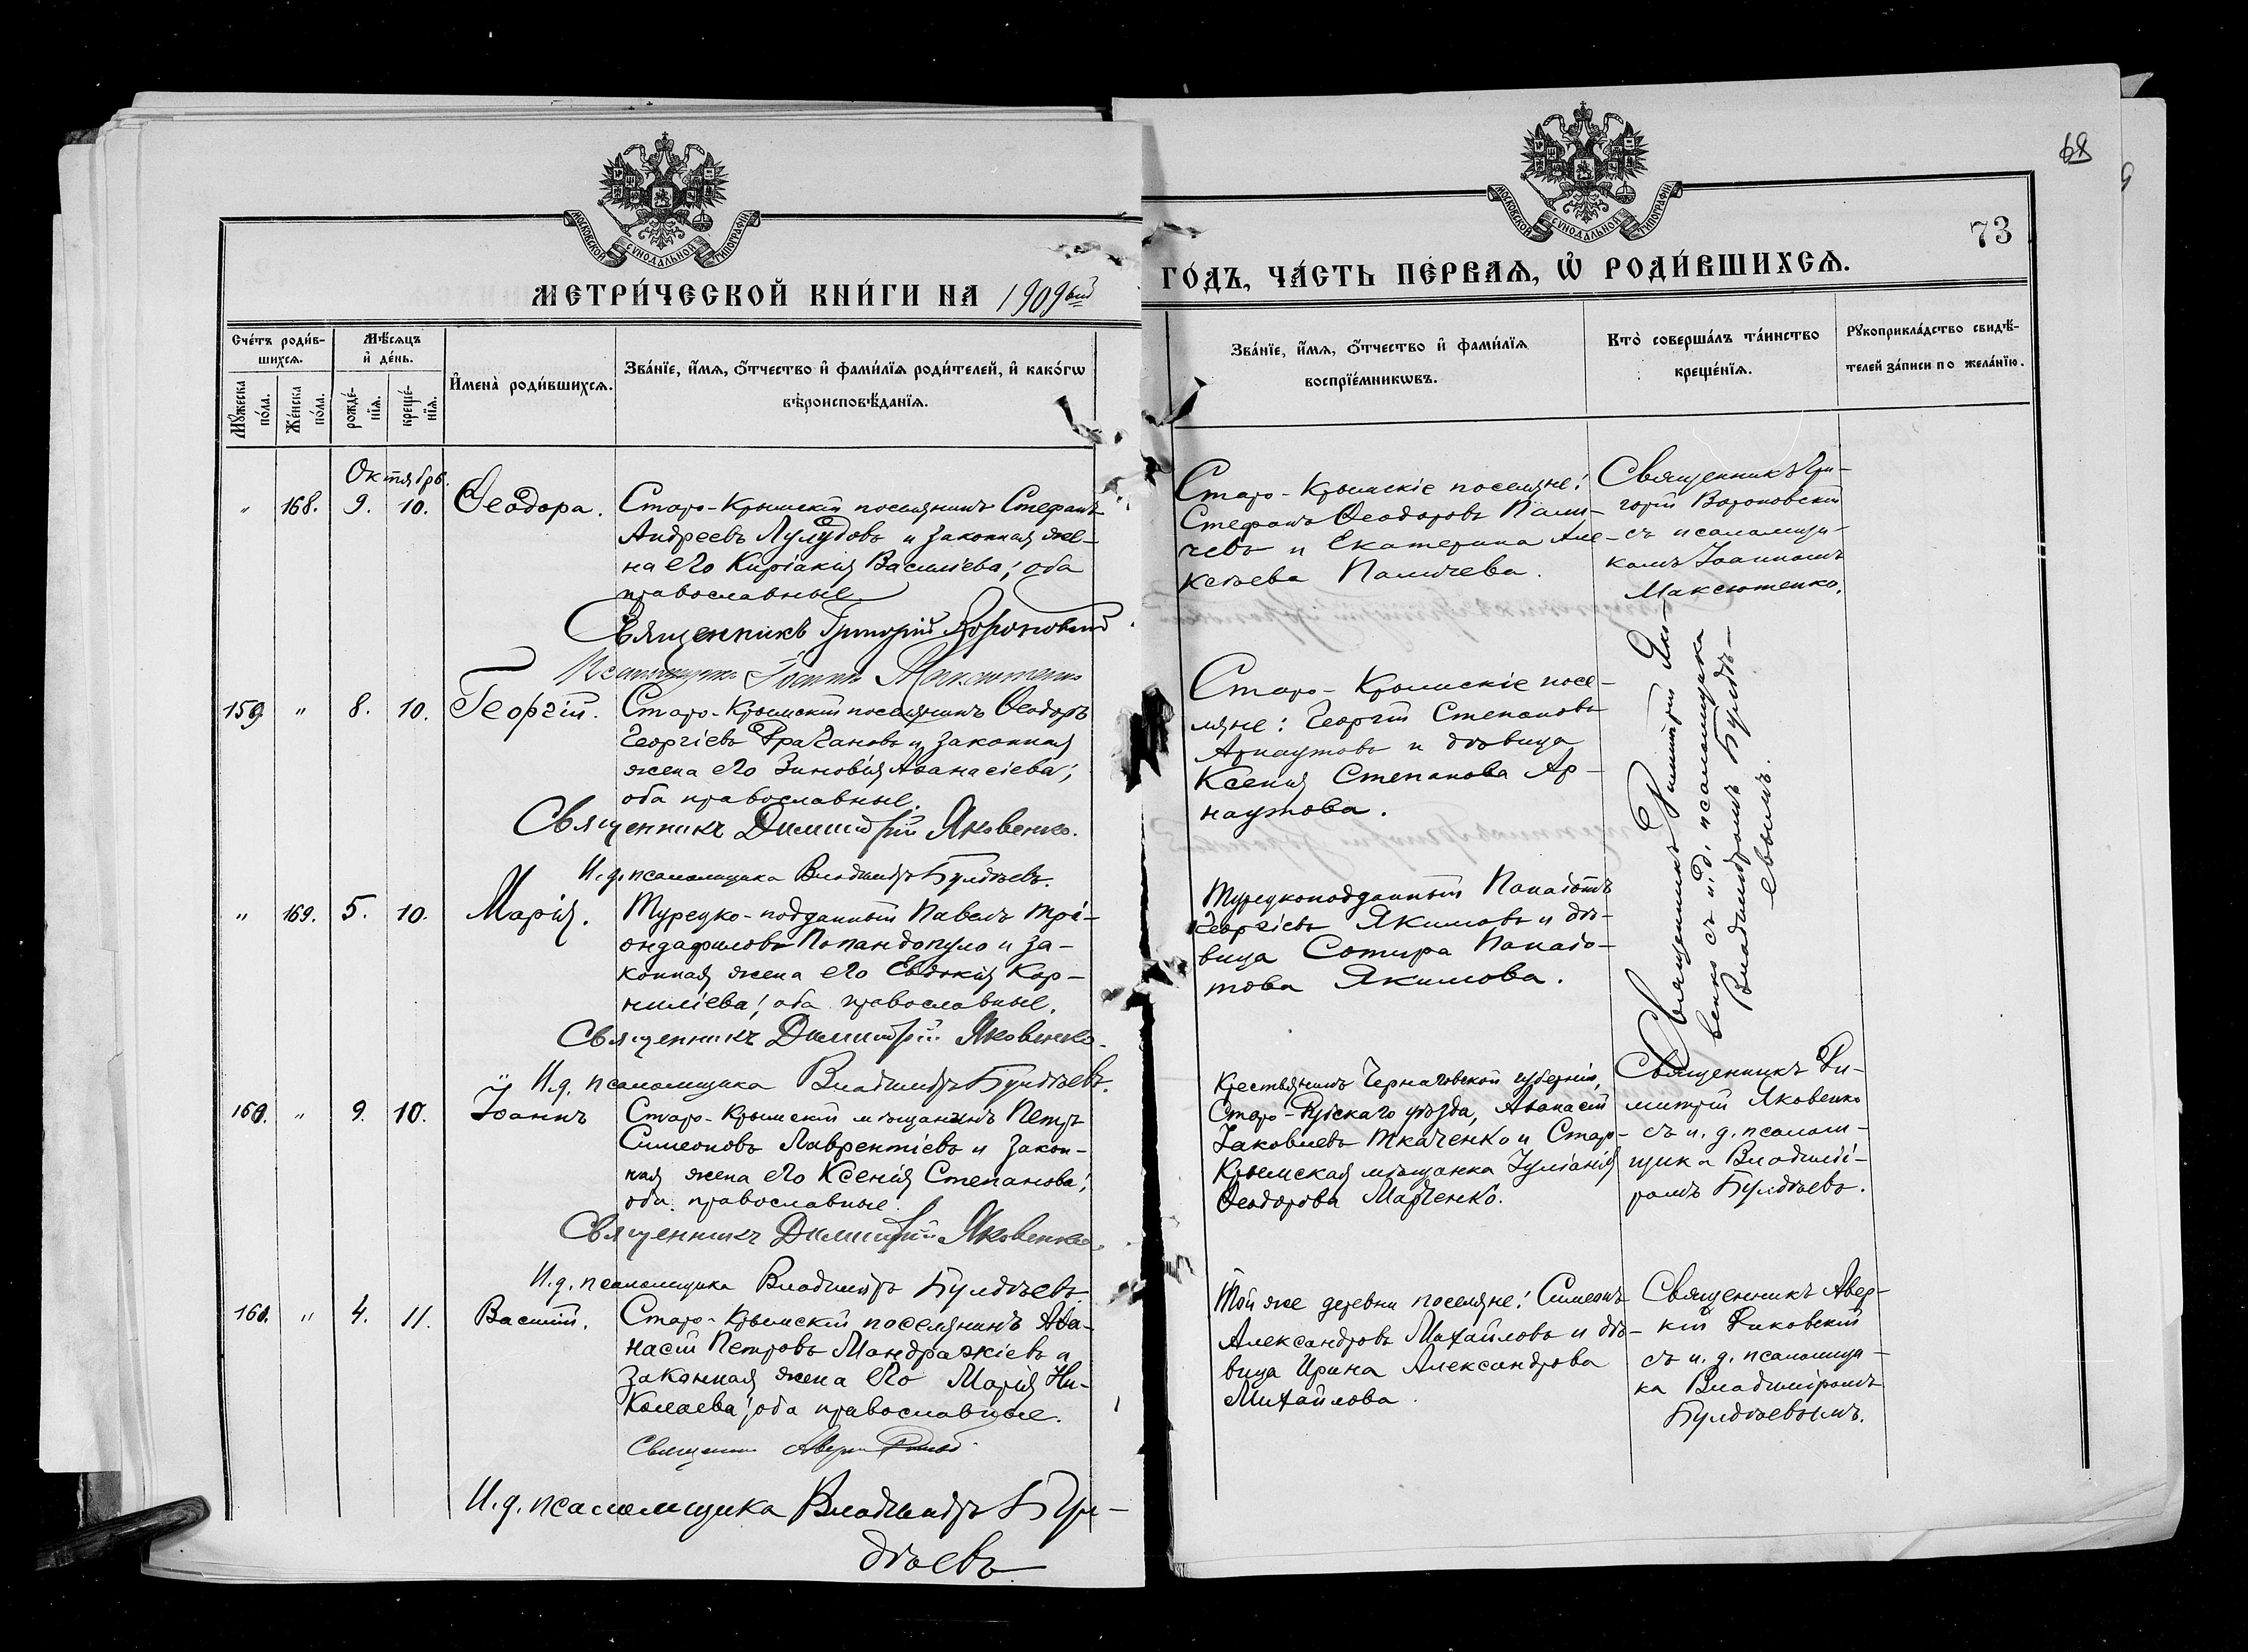 68
73
МОСКОВСКОЙ СѴНОДАЛЬНОЙ ТИПОГРАФІИ
МОСКОВСКОЙ СѴНОДАЛЬНОЙ ТИПОГРАФІИ
МЕТРИ́ЧЕСКОЙ КНИ́ГИ НА 1909ый
ГО́ДЪ, ЧА́СТЬ ПЕ́РВАѦ, Ѡ҆ РОДИ́ВШИХСѦ.
Сче́тъ роди́в-
шихсѧ.
Мꙋ́жеска по́ла.
Же́нска по́ла.
Мѣ́сѧцъ
и҆ де́нь.
рожде́-
нїѧ.
креще́-
нїѧ.
И҆мена̀ роди́вшихсѧ.
Зва́нїе, и҆́мѧ, ѻ҆́тчество и҆ фами́лїѧ роди́телей, и҆ како́гѡ
вѣроисповѣ́данїѧ.
Зва́нїе, и҆́мѧ, ѻ҆́тчество и҆ фами́лїѧ
воспрїе́мникѡвъ.
Кто̀ соверша́лъ та́инство
креще́нїѧ.
Рꙋкоприкла́дство свидѣ́-
телей за́писи по жела́нїю.
Октябрь.
" 168. 9. 10. Ѳеодора.
Старо-Крымскій поселянинъ Стефанъ
Андреевъ Лулудовъ и законная же-
на его Киріакія Василіева; оба
православные.
Священникъ Григорій Вороновскій
Псаломщикъ Іоаннъ Максютенко
Старо-Крымскіе поселяне:
Стефанъ Ѳеодоровъ Пали-
чевъ и Екатерина Але-
ксѣева Паличева.
Священникъ Гри-
горій Вороновскій
съ псаломщи-
комъ Іоанномъ
Максютенко.
159. " 8. 10. Георгій.
Старо-Крымскій поселянинъ Ѳеодоръ
Георгіевъ Драчановъ и законная
жена его Зиновія Аѳанасіева;
оба православные.
Священникъ Димитрій Яковенко.
И.д. псаломщика Владиміръ Булдѣевъ.
Старо-Крымскіе посе-
ляне: Георгій Степановъ
Арнаутовъ и дѣвица
Ксенія Степанова Ар-
наутова.
Священникъ Димитрій Яко-
венко съ и.д. псаломщика
Владиміромъ Булдѣ-
евымъ.
" 169. 5. 10. Марія.
Турецко-подданный Павелъ Трі-
ондафиловъ Попандопуло и за-
конная жена его Евдокія Кор-
ниліева; оба православные.
Священникъ Димитрій Яковенко.
И.д. псаломщика Владиміръ Булдѣевъ.
Турецкоподданный Панаіотъ
Георгіевъ Якимовъ и дѣ-
вица Сотира Панаіо-
това Якимова.
160. " 9. 10. Іоаннъ
Старо-Крымскій мѣщанинъ Петръ
Симеоновъ Лаврентіевъ и закон-
ная жена его Ксенія Степанова;
оба православные.
Священникъ Димитрій Яковенко.
И.д. псаломщика Владиміръ Булдѣевъ
Крестьянинъ Черниговской губерніи,
уѣзда, Аѳанасій
Іаковлевъ Ткаченко и Старо-
Крымская мѣщанка Іуліанія
Ѳеодорова Марченко.
Священникъ Ди-
митрій Яковенко
съ и.д. псалом-
щика Владимі-
ромъ Булдѣевъ.
161. " 4. 11. Василій.
Старо-Крымскій поселянинъ Аѳа-
насій Петровъ Мандражіевъ и
законная жена его Марія Ни-
колаева; оба православные.
И.д. псаломщика Владиміръ Бул-
дѣевъ
Той же деревни поселяне: Симеонъ
Александровъ Михайловъ и дѣ-
вица Ирина Александрова
Михайлова.
Священникъ Авер-
кій
съ и.д. псаломщи-
ка Владиміромъ
Булдѣевымъ.